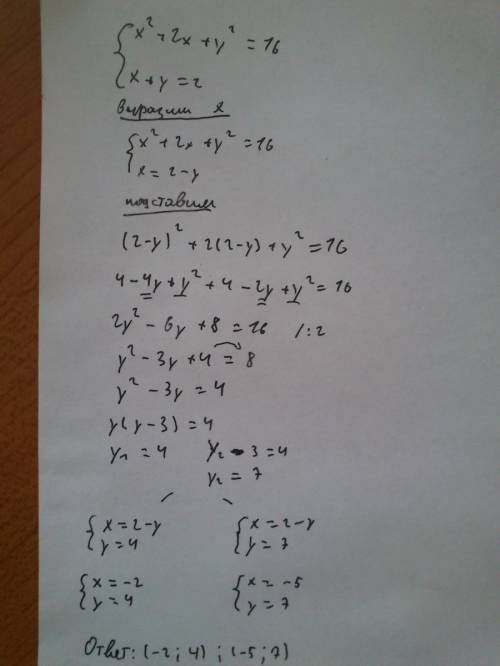 { x² + 2x + y² = 16
x + y = 2
выразим x
{ x² + 2x + y² = 16
x = 2 - y
подставим
(2-y)² + 2(2-y) + y² = 16
4 - 4y + y² + 4 - 2y + y² = 16
2y² - 6y + 8 = 16 /:2
y² - 3y + 4 = 8
y² - 3y = 4
y(y-3) = 4
y₁ = 4 y₂ - 3 = 4
y₂ = 7
{ x = 2-y { x = 2-y
y = 4 y = 7
{ x = -2 { x = -5
y = 4 y = 7
Ответ: (-2; 4) ; (-5; 7)